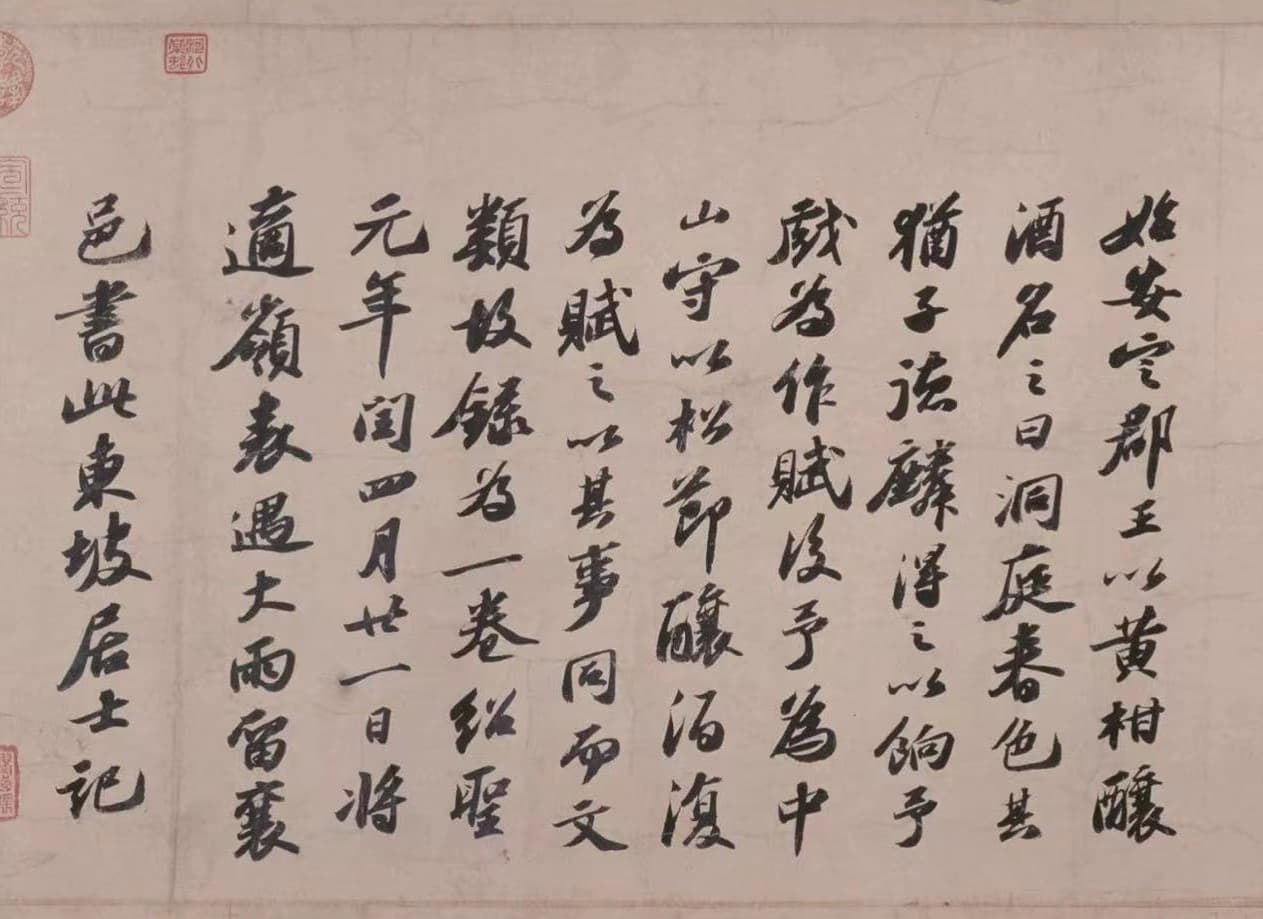 始安定郡王以黄柑釀
酒名之曰洞庭春色其
猶子德麟得之以餉予
戲為作賦後予為中
山守以松節釀酒復
為賦之以其事同而文
類故録為一卷紹聖
元年閏四月廿一日將
適嶺表遇大雨留襄
邑書此東坡居士記